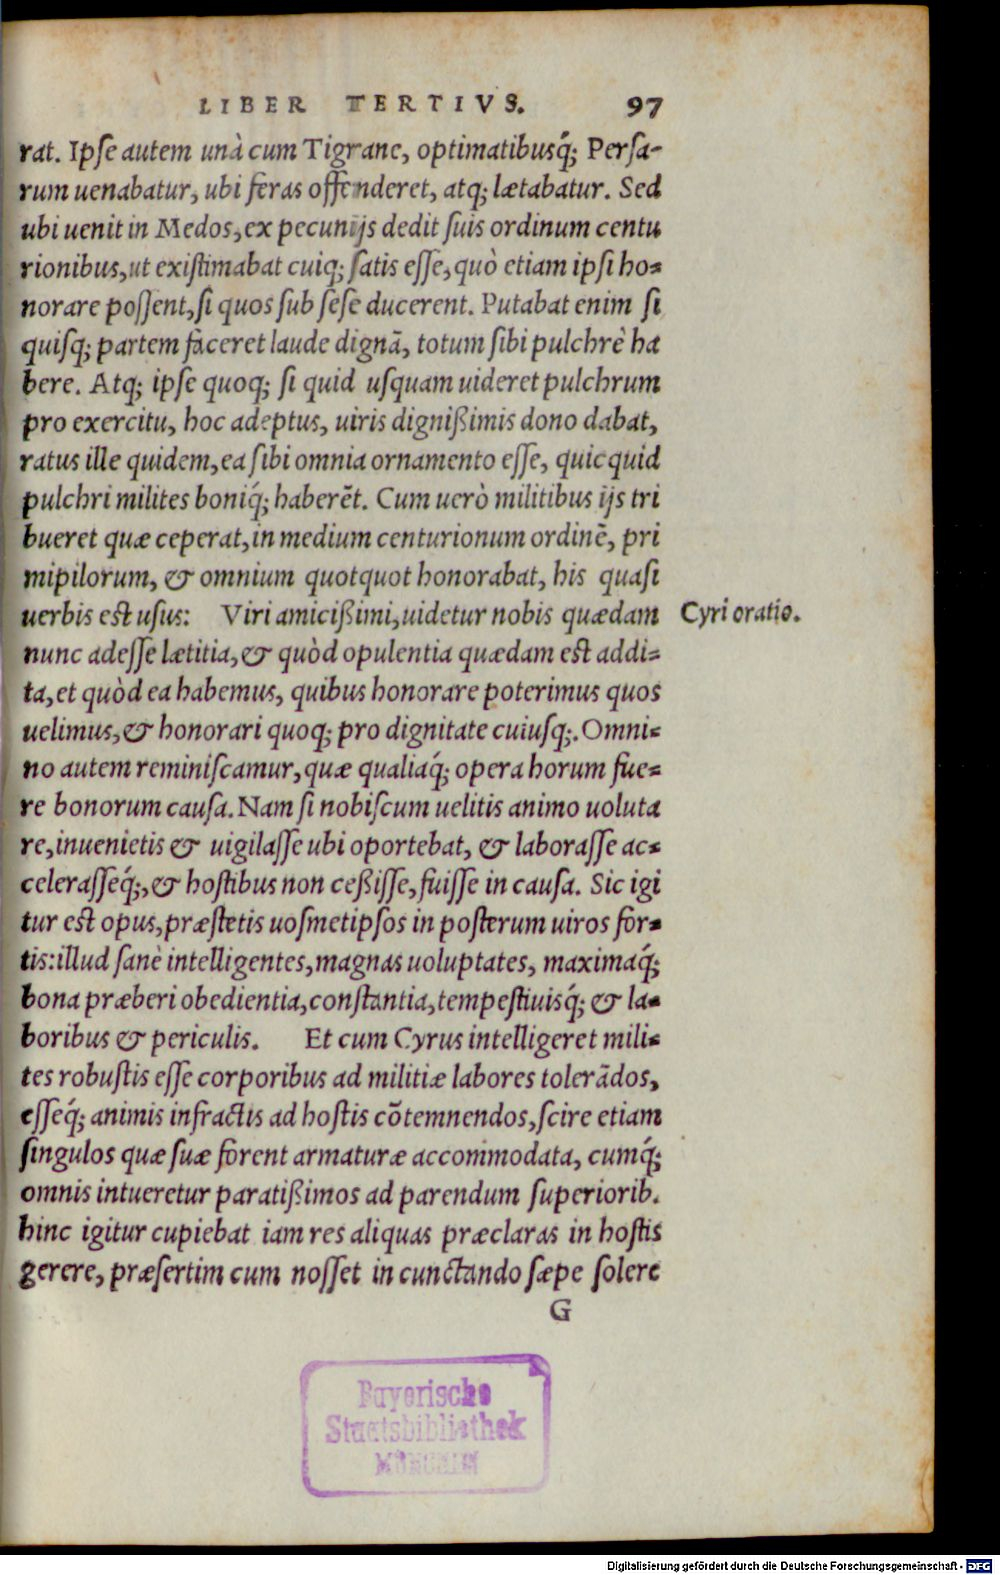 LIBER TERTIVS. 97
rat. Ipſe autem unà cum Tigrane, optimatibusq́; Perſa-
rum uenabatur, ubi feras offenderet, atq; lætabatur. Sed
ubi uenit in Medos, ex pecunijs dedit ſuis ordinum centu
rionibus, ut exiſtimabat cuiq; ſatis eſſe, quò etiam ipſi ho-
norare poſſent, ſi quos ſub ſeſe ducerent. Putabat enim ſi
quiſq; partem faceret laude dignā, totum ſibi pulchrè ha
bere. Atq; ipſe quoq; ſi quid uſquam uideret pulchrum
pro exercitu, hoc adeptus, uiris dignißimis dono dabat,
ratus ille quidem, ea ſibi omnia ornamento eſſe, quicquid
pulchri milites boniq́; haberēt. Cum uerò militibus ijs tri
bueret quæ ceperat, in medium centurionum ordinē, pri
mipilorum, & omnium quotquot honorabat, his quaſi
uerbis eſt uſus: Viri amicißimi, uidetur nobis quædam
Cyri oratio.
nunc adeſſe lætitia, & quòd opulentia quædam eſt addi-
ta, et quòd ea habemus, quibus honorare poterimus quos
uelimus, & honorari quoq; pro dignitate cuiuſq;. Omni-
no autem reminiſcamur, quæ qualiaq́; opera horum fue-
re bonorum cauſa. Nam ſi nobiſcum uelitis animo uoluta
re, inuenietis & uigilaſſe ubi oportebat, & laboraſſe ac-
celeraſſeq́;, & hoſtibus non ceßiſſe, fuiſſe in cauſa. Sic igi
tur eſt opus, præſtetis uoſmetipſos in poſterum uiros for-
tis: illud ſanè intelligentes, magnas uoluptates, maximaq́;
bona præberi obedientia, conſtantia, tempeſtiuisq́; & la-
boribus & periculis. Et cum Cyrus intelligeret mili-
tes robuſtis eſſe corporibus ad militiæ labores tolerādos,
eſſeq́; animis infractis ad hoſtis cōtemnendos, ſcire etiam
ſingulos quæ ſuæ forent armaturæ accommodata, cumq́;
omnis intueretur paratißimos ad parendum ſuperiorib.
hinc igitur cupiebat iam res aliquas præclaras in hoſtis
gerere, præſertim cum noſſet in cunctando ſæpe ſolere
G
Bayerische
Staatsbibliothek
MÜNCHEN
Digitalisierung gefördert durch die Deutsche Forschungsgemeinschaft - DFG